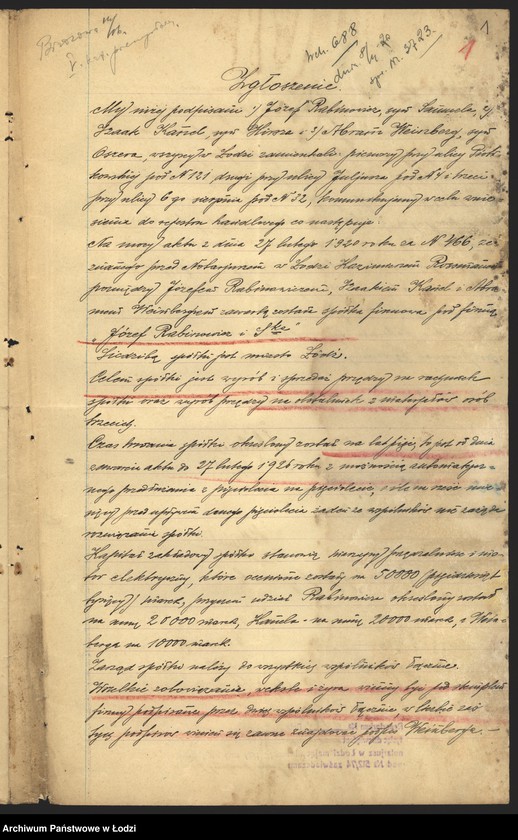 Wch. 688
dnia 8/IV 20
1
1
Zgłoszenie.
My niżej podpisani 1) Józef Rabinowicz, syn Samuela, 2)
Izaak Kaid, syn Hirsza i 3) Abram Weinberg, syn
Oszera, wszyscy w Łodzi zamieszkali: pierwszy przy ulicy Piotr-
kowskiej pod N 121 drugi przy ulicy Juljusza pod N i trzeci-
przy ulicy 6-go sierpnia pod N 32, komunikujemy w celu wnie-
sienia do rejestru handlowego co następuje:
Na mocy aktu z dnia 27 lutego 1920 roku za N 466, ze-
znanego przed Notarjuszem w Łodzi Kazimierzem
pomiędzy Józefem Rabinowiczem, Izaakiem Kaid i Abra-
mem Weinbergiem zawartą została spółka firmowa pod firmą:
"Józef Rabinowicz i S-ka"
Siedzibą spółki jest miasto Łódź.
Celem spółki jest wyrób i sprzedaż przędzy na rachunek
spółki oraz wyrób przędzy na obstalunek z materjałów osób
trzecich.
Czas trwania spółki określony został na lat pięć, to jest od dnia
zawarcia aktu do 27 lutego 192 roku z możnością automatycz-
nego przedłużania z pięciolecia na pięciolecie, o ile na sześć mie-
sięcy przed upływem danego pięciolecia żaden ze wspólników nie zażąda
rozwiązania spółki.
Kapitał zakładowy spółki stanowią maszyny przędzalnicze i mo-
tor elektryczny, które ocenione zostały na 50000 (pięćdziesiąt
tysięcy) marek, przyczem udział Rabinowicza określony został
na sumę 20000 marek, Kaida - na sumę 20000 marek, a Wein-
berga na 10000 marek.
Zarząd spółki należy do wszystkich wspólników łącznie.
Wszelkie zobowiązania, weksle i żyra winny być pod stemplem
firmy podpisane przez dwóch wspólników łącznie, w liczbie zaś
tych podpisów winien się zawsze znajdować podpis Weinberga. -
Archiwum Państwowe w Łodzi